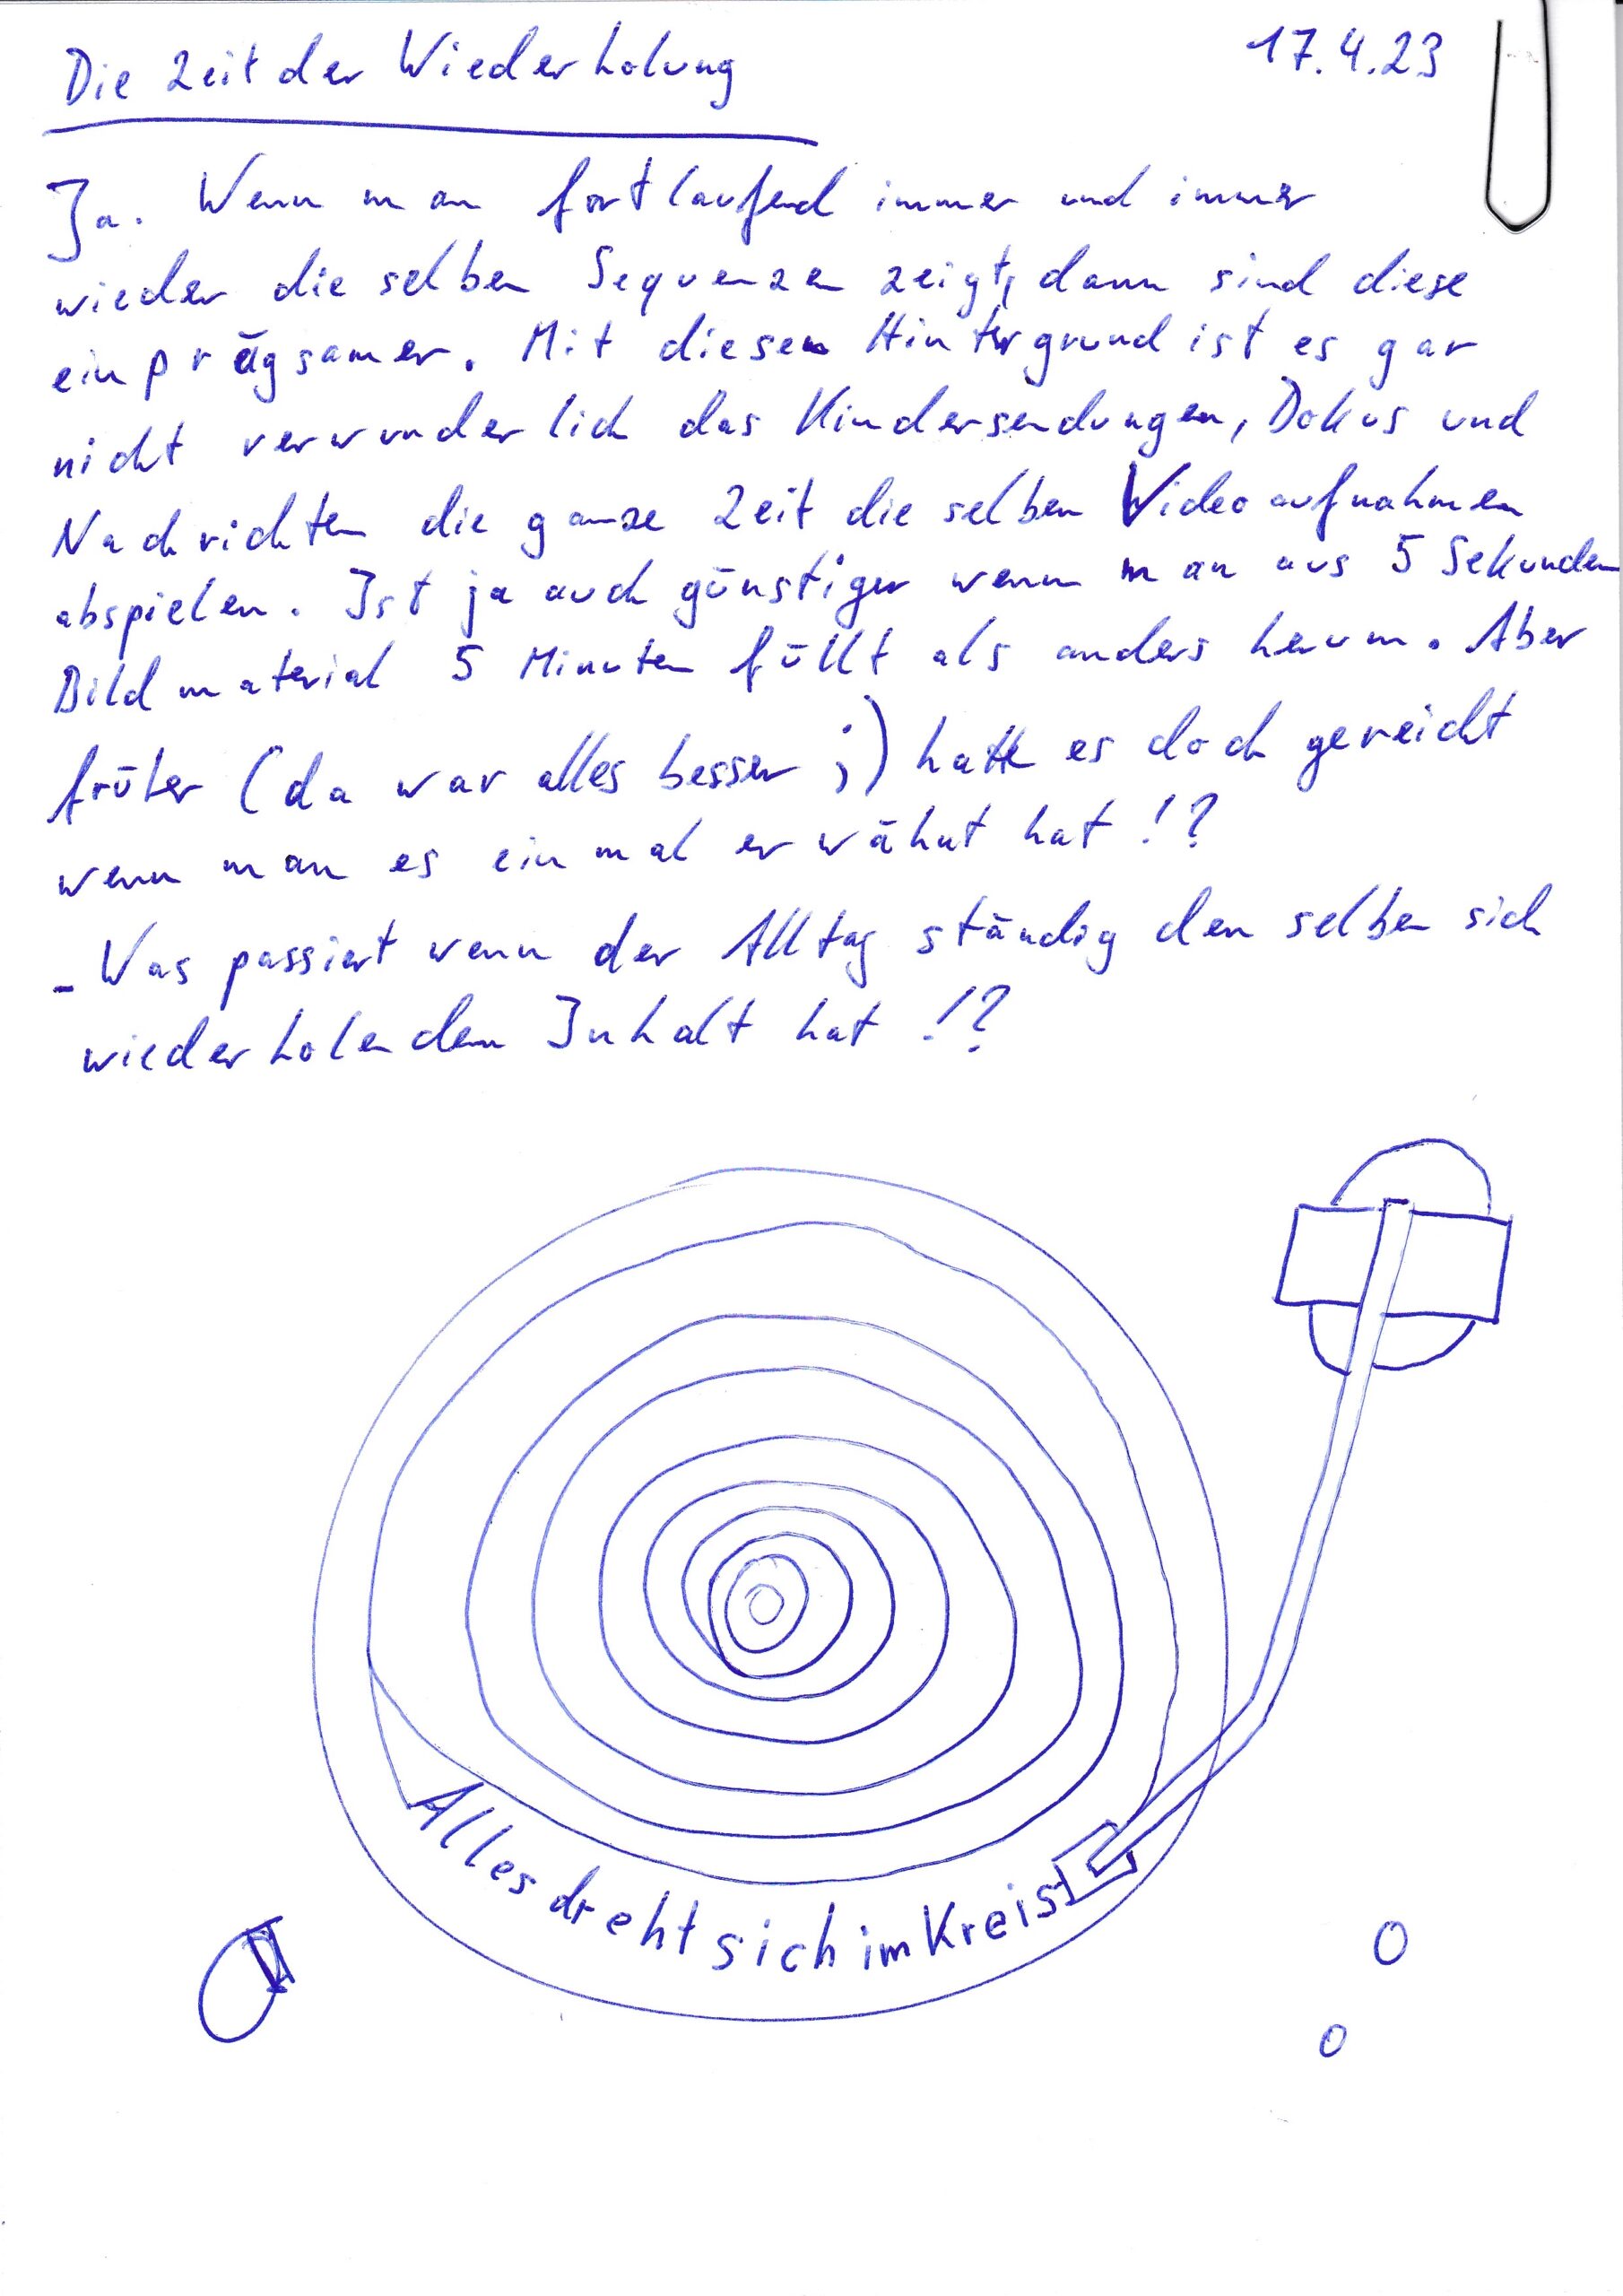 Die Zeit der Wiederholung 17.4.23
Ja. Wenn man fortlaufend immer und immer
wieder die selben Sequenzen zeigt, dann sind diese
einprägsamer. Mit diesem Hintergrund ist es gar
nicht verwunderlich das Kindersendungen, Dokus und
Nachrichten die ganze Zeit die selben Videoaufnahmen
abspielen. Ist ja auch günstiger wenn man aus 5 Sekunden
Bildmaterial 5 Minuten füllt als anders herum. Aber
früher (da war alles besser ;) hatte es doch gereicht
wenn man es einmal erwähnt hat!?
- Was passiert wenn der Alltag ständig den selben sich
wiederholenden Inhalt hat!?
Alles dreht sich im Kreis